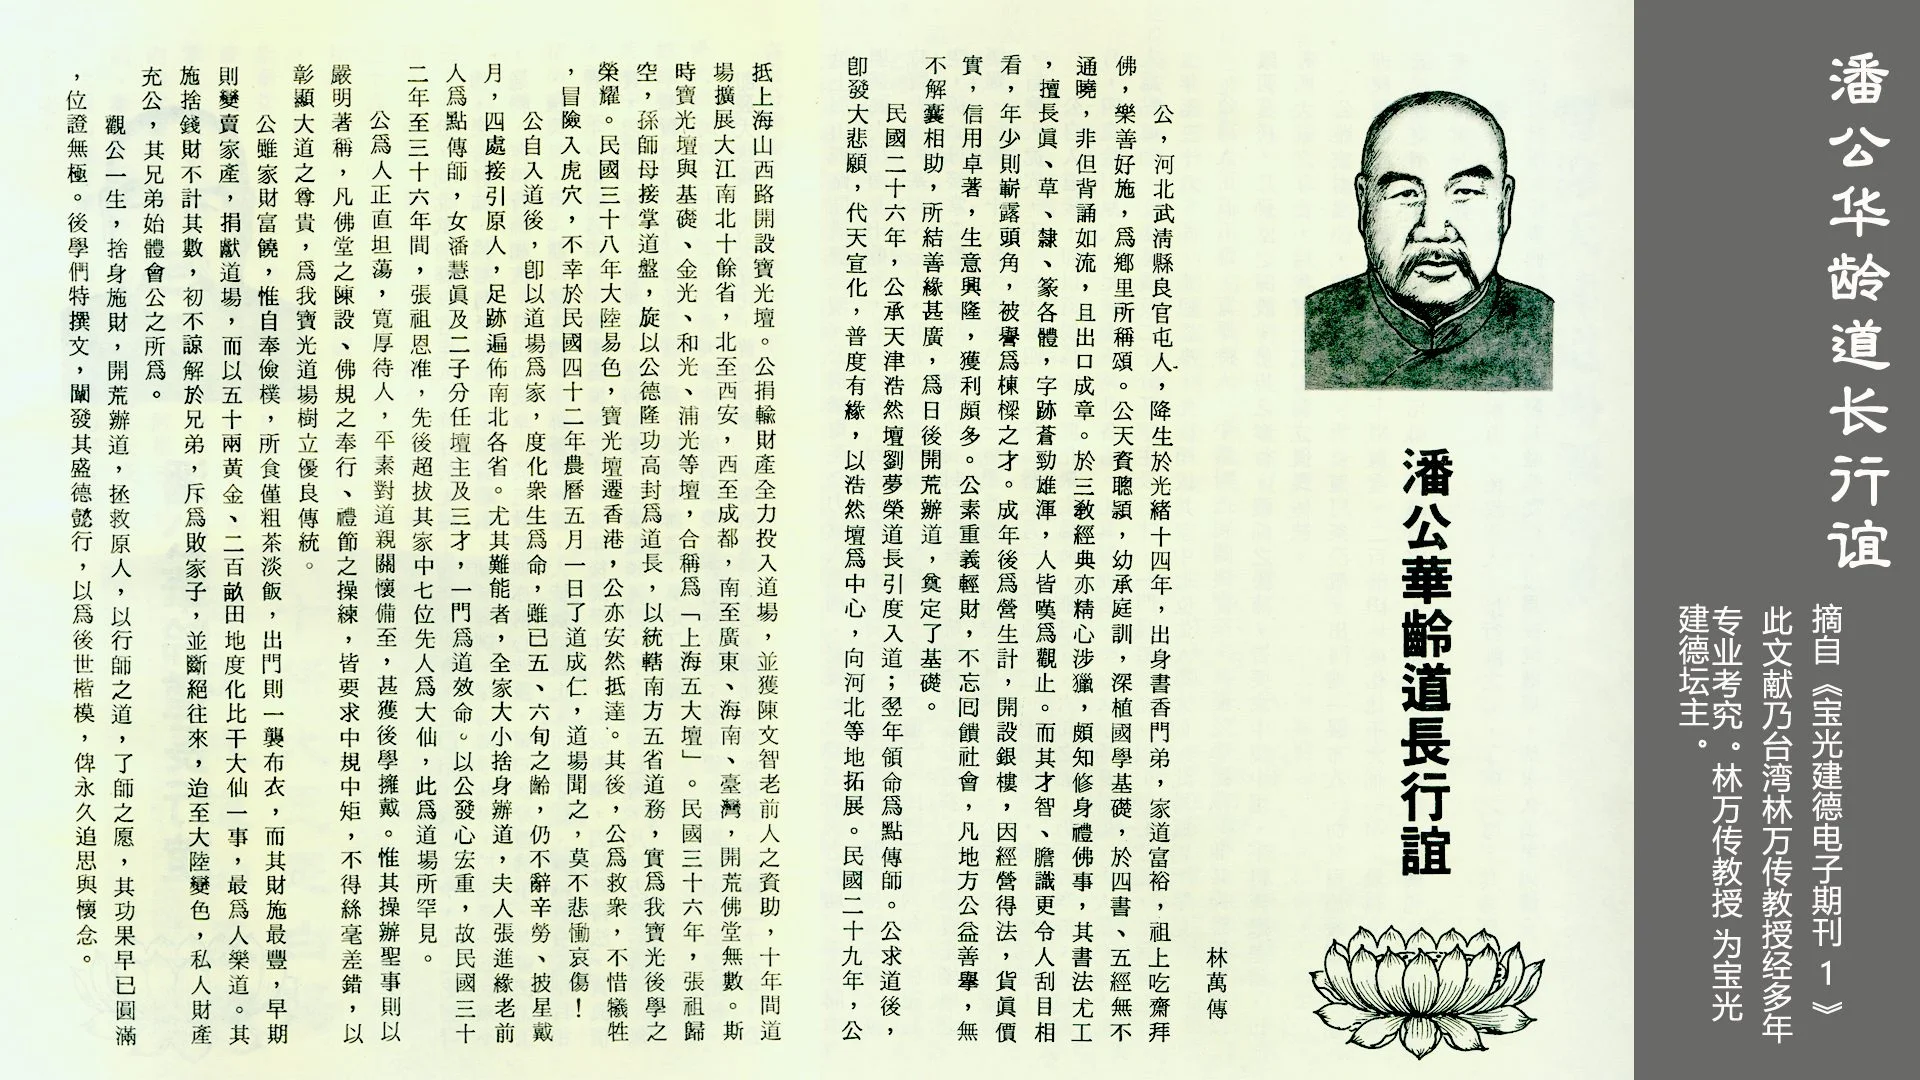 潘公华龄道长行谊
摘自《宝光建德电子期刊 1 》
此文献乃台湾林万传教授经多年
专业考究。林万传教授 为宝光
建德坛主。
潘公華齡道長行誼
林萬傳
公，河北武清縣良官屯人，降生於光緒十四年，出身書香門弟，家道富裕，祖上吃齋拜
佛，樂善好施，爲鄉里所稱頌。公天資聰頴，幼承庭訓，深植國學基礎，於四書、五經無不
通曉，非但背誦如流，且出口成章。於三教經典亦精心涉獵，頗知修身禮佛事，其書法尤工
，擅長眞、草、隸、篆各體，字跡蒼勁雄渾，人皆嘆爲觀止。而其才智、膽識更令人刮目相
看，年少則嶄露頭角，被譽爲棟樑之才。成年後爲營生計，開設銀樓，因經營得法，貨眞價
實，信用卓著，生意興隆，獲利頗多。公素重義輕財，不忘回饋社會，凡地方公益善舉，無
不解囊相助，所結善緣甚廣，爲日後開荒辦道，奠定了基礎。
民國二十六年，公承天津浩然壇劉夢榮道長引度入道；翌年領命爲點傳師。公求道後，
卽發大悲願，代天宣化，普度有緣，以浩然壇爲中心，向河北等地拓展。民國二十九年，公
抵上海山西路開設寶光壇。公捐輸財產全力投入道場，並獲陳文智老前人之資助，十年間道
場擴展大江南北十餘省，北至西安，西至成都，南至廣東、海南、臺灣，開荒佛堂無數。斯
時寶光壇與基礎、金光、和光、浦光等壇，合稱爲「上海五大壇」。民國三十六年，張祖歸
空，孫師母接掌道盤，旋以公德隆功高封爲道長，以統轄南方五省道務，實爲我寶光後學之
榮耀。民國三十八年大陸易色，寶光壇遷香港，公亦安然抵達。其後，公爲救衆，不惜犧牲
，冒險入虎穴，不幸於民國四十二年農曆五月一日了道成仁，道場聞之，莫不悲慟哀傷！
公自入道後，卽以道場爲家，度化衆生爲命，雖已五、六旬之齡，仍不辭辛勞、披星戴
月，四處接引原人，足跡遍佈南北各省。尤其難能者，全家大小捨身辦道，夫人張進緣老前
人爲點傳師，女潘慧眞及二子分任壇主及三才，一門爲道效命。以公發心宏重，故民國三十
二年至三十六年間，張祖恩准，先後超拔其家中七位先人爲大仙，此爲道場所罕見。
公爲人正直坦蕩，寬厚待人，平素對道親關懷備至，甚獲後學擁戴。惟其操辦聖事則以
嚴明著稱，凡佛堂之陳設、佛規之奉行、禮節之操練，皆要求中規中矩，不得絲毫差錯，以
彰顯大道之尊貴，爲我寶光道場樹立優良傳統。
公雖家財富饒，惟自奉儉樸，所食僅粗茶淡飯，出門則一襲布衣，而其財施最豐，早期
則變賣家產，捐獻道場，而以五十兩黃金、二百畝田地度化比干大仙一事，最爲人樂道。其
施捨錢財不計其數，初不諒解於兄弟，斥爲敗家子，並斷絕往來，迨至大陸變色，私人財產
充公，其兄弟始體會公之所爲。
觀公一生，捨身施財，開荒辦道，拯救原人，以行師之道，了師之愿，其功果早已圓滿
，位證無極。後學們特撰文，闡發其盛德懿行，以爲後世楷模，俾永久追思與懷念。